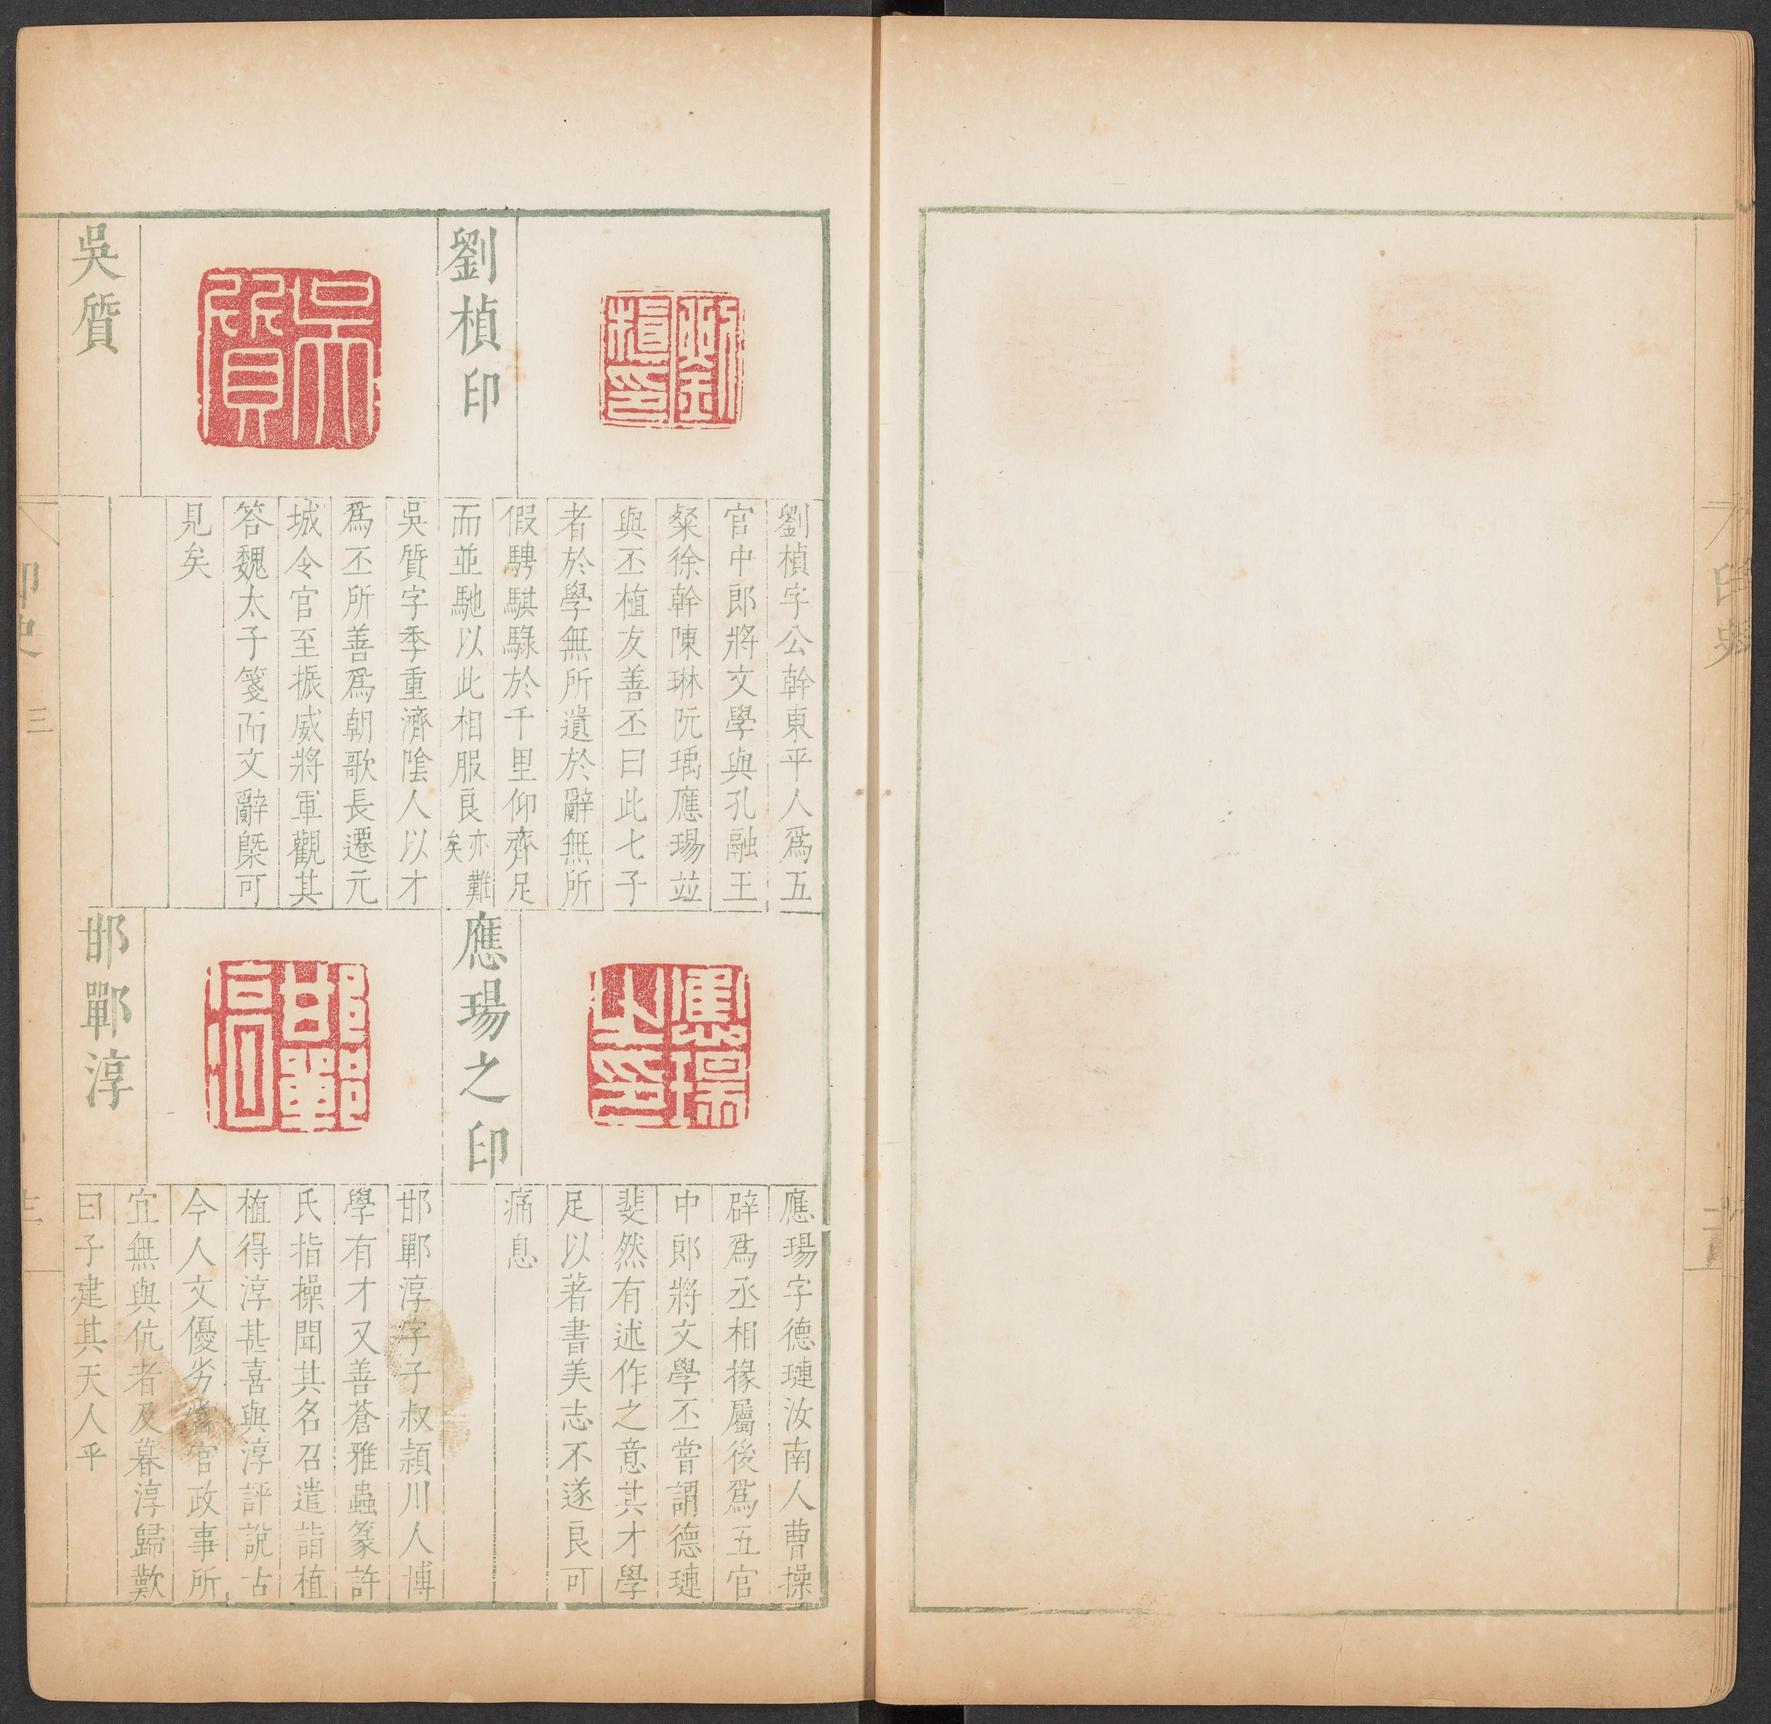 劉楨印
劉楨字公幹東平人爲五
官中郎將文學與孔融王
粲徐幹陳琳阮瑀應瑒並
與丕植友善丕曰此七子
者於學無所遺於辭無所
假騁騏驥於千里仰齊足
而並馳以此相服良亦難矣
吳質
吳質字季重濟陰人以才
爲丕所善爲朝歌長遷元
城令官至振威將軍觀其
答魏太子箋而文辭槩可
見矣
應瑒之印
應瑒字德璉汝南人曹操
辟爲丞相掾屬後爲五官
中郎將文學丕嘗謂德璉
斐然有述作之意其才學
足以著書美志不遂良可
痛息
邯鄲淳
邯鄲淳字子叔潁川人博
學有才又善蒼雅蟲篆許
氏指操聞其名召遣詣植
植得淳甚喜與淳評說古
今人文優劣當官政事所
宜無與伉者及暮淳歸歎
曰子建其天人乎
印史
三